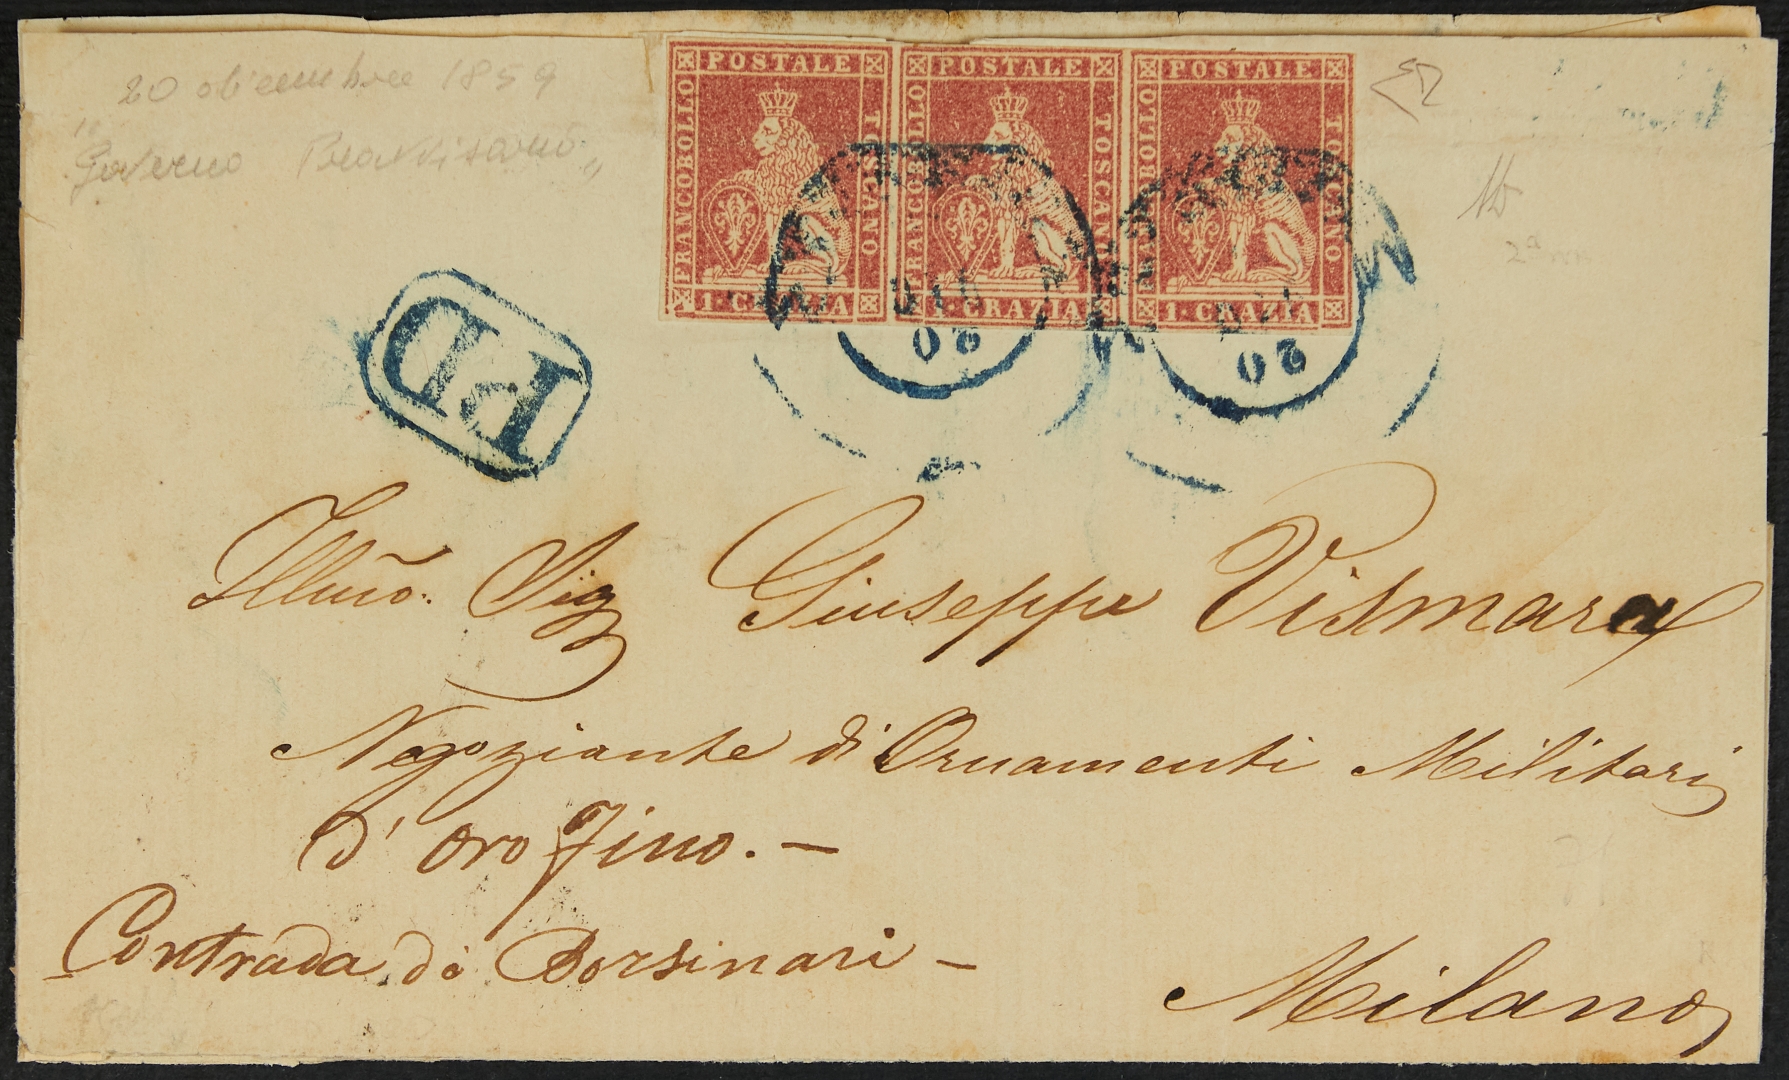 20 dicembre 1859
"Governo Provvisorio"
POSTALE POSTALE POSTALE
FRANCOBOLLO TOSCANO FRANCOBOLLO TOSCANO FRANCOBOLLO TOSCANO
1. CRAZIA 1. CRAZIA 1. CRAZIA
20 20
PD
Illmo. Sig Giuseppe Vismara
Negoziante di Ornamenti Militari
d'oro Fino. —
Contrada di Borsinari —
Milano